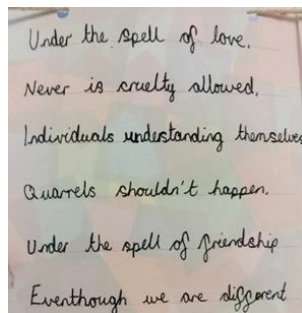 Under the spell of love,
Never is cruelty allowed,
Individuals understanding themselves
Quarrels shouldn't happen.
Under the spell of friendship
Eventhough we are different